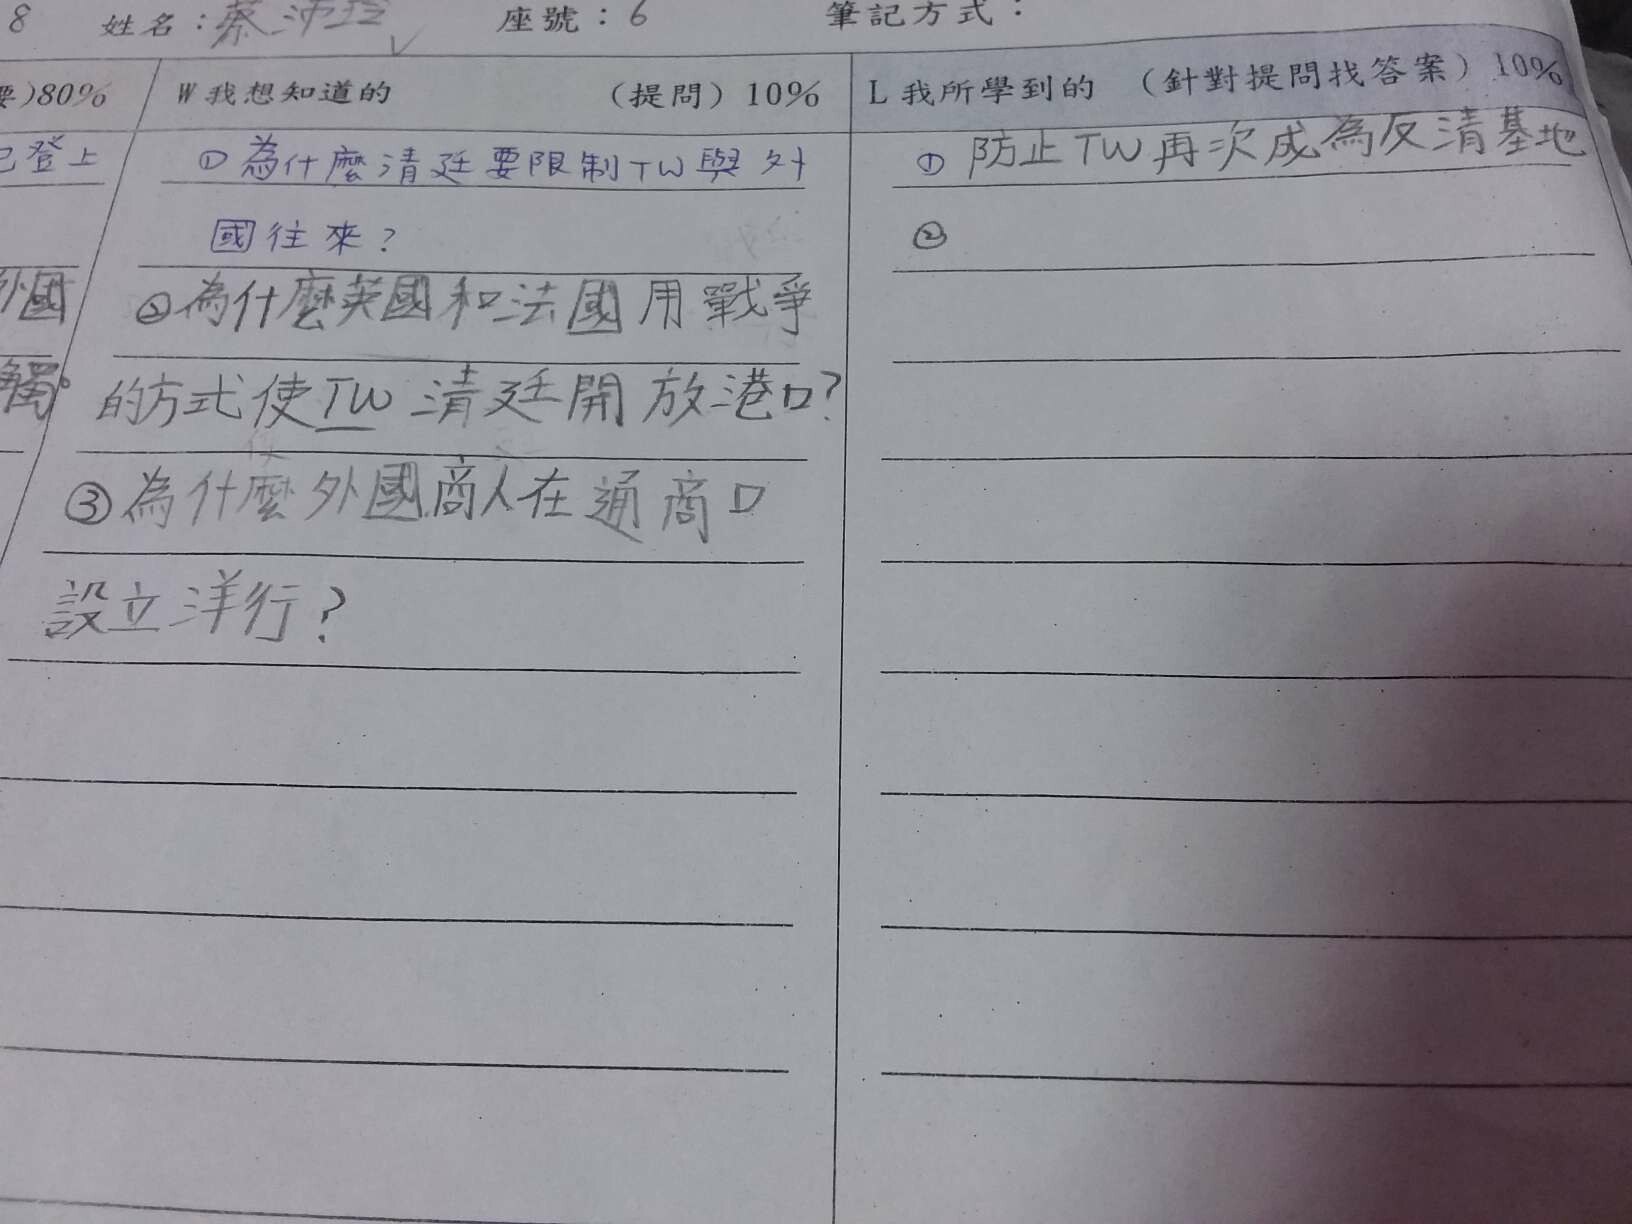 8 姓名：蔡沛玲 座號：6 筆記方式：
要)80% W我想知道的 （提問）10% L我所學到的 （針對提問找答案）10%
已登上 ①為什麼清廷要限制TW與外 ①防止TW再次成為反清基地
國往來? ②
外國 ②為什麼英國和法國用戰爭
觸。 的方式使TW清廷開放港口?
③為什麼外國商人在通商口
設立洋行?